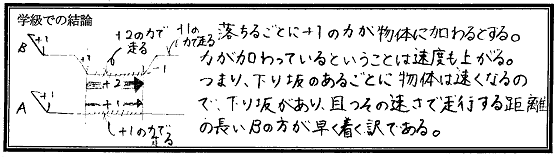 学級での結論
落ちるごとに+1の力が物体に加わるとする。
力が加わっているということは速度も上がる。
つまり、下り坂のあるごとに物体は速くなるの
で、下り坂があり、且つその速さで走行する距離
の長いBの方が早く着く訳である。
+2の力で
走る
+1の
力で走る
B
+1
+1
-1
+2
+1
A
+1
+1の力で
走る